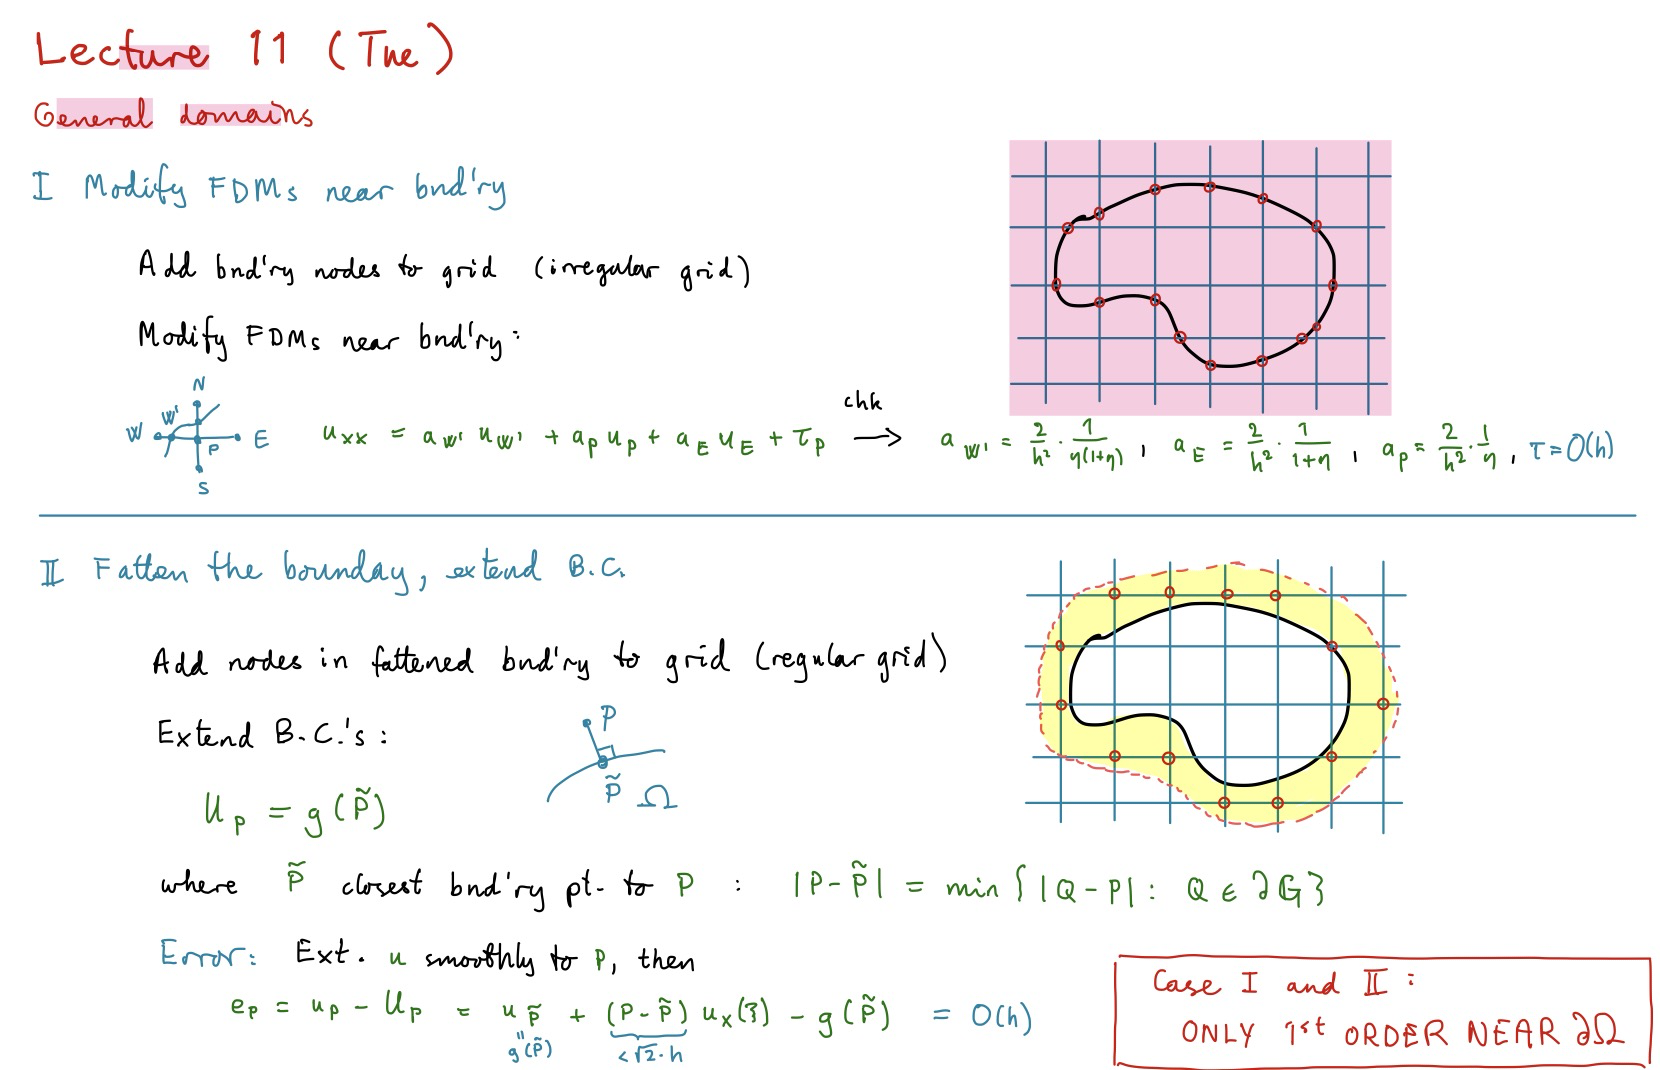 Lecture 11 (Tue)
General domains
I Modify FDMs near bnd'ry
Add bnd'ry nodes to grid (irregular grid)
Modify FDMs near bnd'ry:
N
W W' P E
S
u_xx = a_W' u_W' + a_P u_P + a_E u_E + τ_P
chk
→ a_W' = 2/h² · 1/(η(1+η)), a_E = 2/h² · 1/(1+η), a_P = 2/h² · 1/η, τ = O(h)
II Fatten the bounday, extend B.C.
Add nodes in fattened bnd'ry to grid (regular grid)
Extend B.C.'s:
P
P̃ Ω
U_P = g(P̃)
where P̃ closest bnd'ry pt. to P : |P-P̃| = min{|Q-P| : Q ∈ ∂G}
Error: Ext. u smoothly to P, then
e_P = u_P - U_P = u_P̃ + (P-P̃) u_x(ξ) - g(P̃) = O(h)
" g(P̃)
<√2·h
Case I and II :
ONLY 1st ORDER NEAR ∂Ω